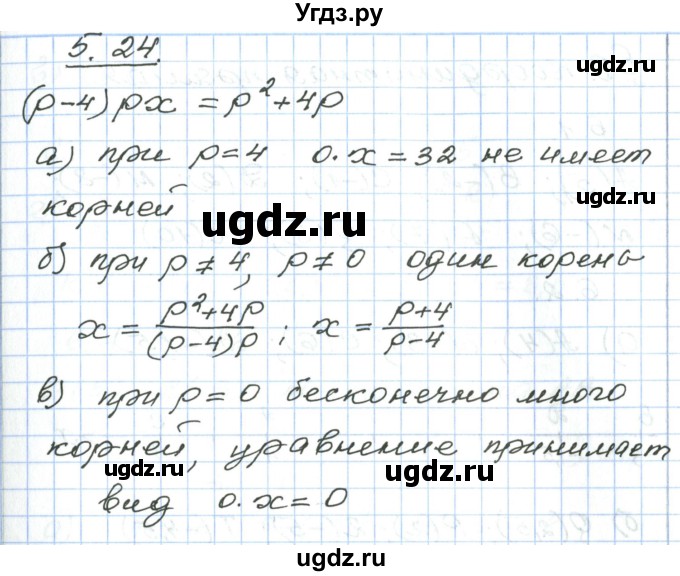 Угдз.ру
5.24.
ugdz.ru
(p-4)px = p²+4p
а) при p=4 0·x=32 не имеет
корней
ugdz.ru
ugdz.ru
б) при p≠4, p≠0 один корень
x = (p²+4p)/((p-4)p) ; x = (p+4)/(p-4)
в) при p=0 бесконечно много
корней, уравнение принимает
ugdz.ru
ugdz.ru
вид 0·x=0
ugdz.ru